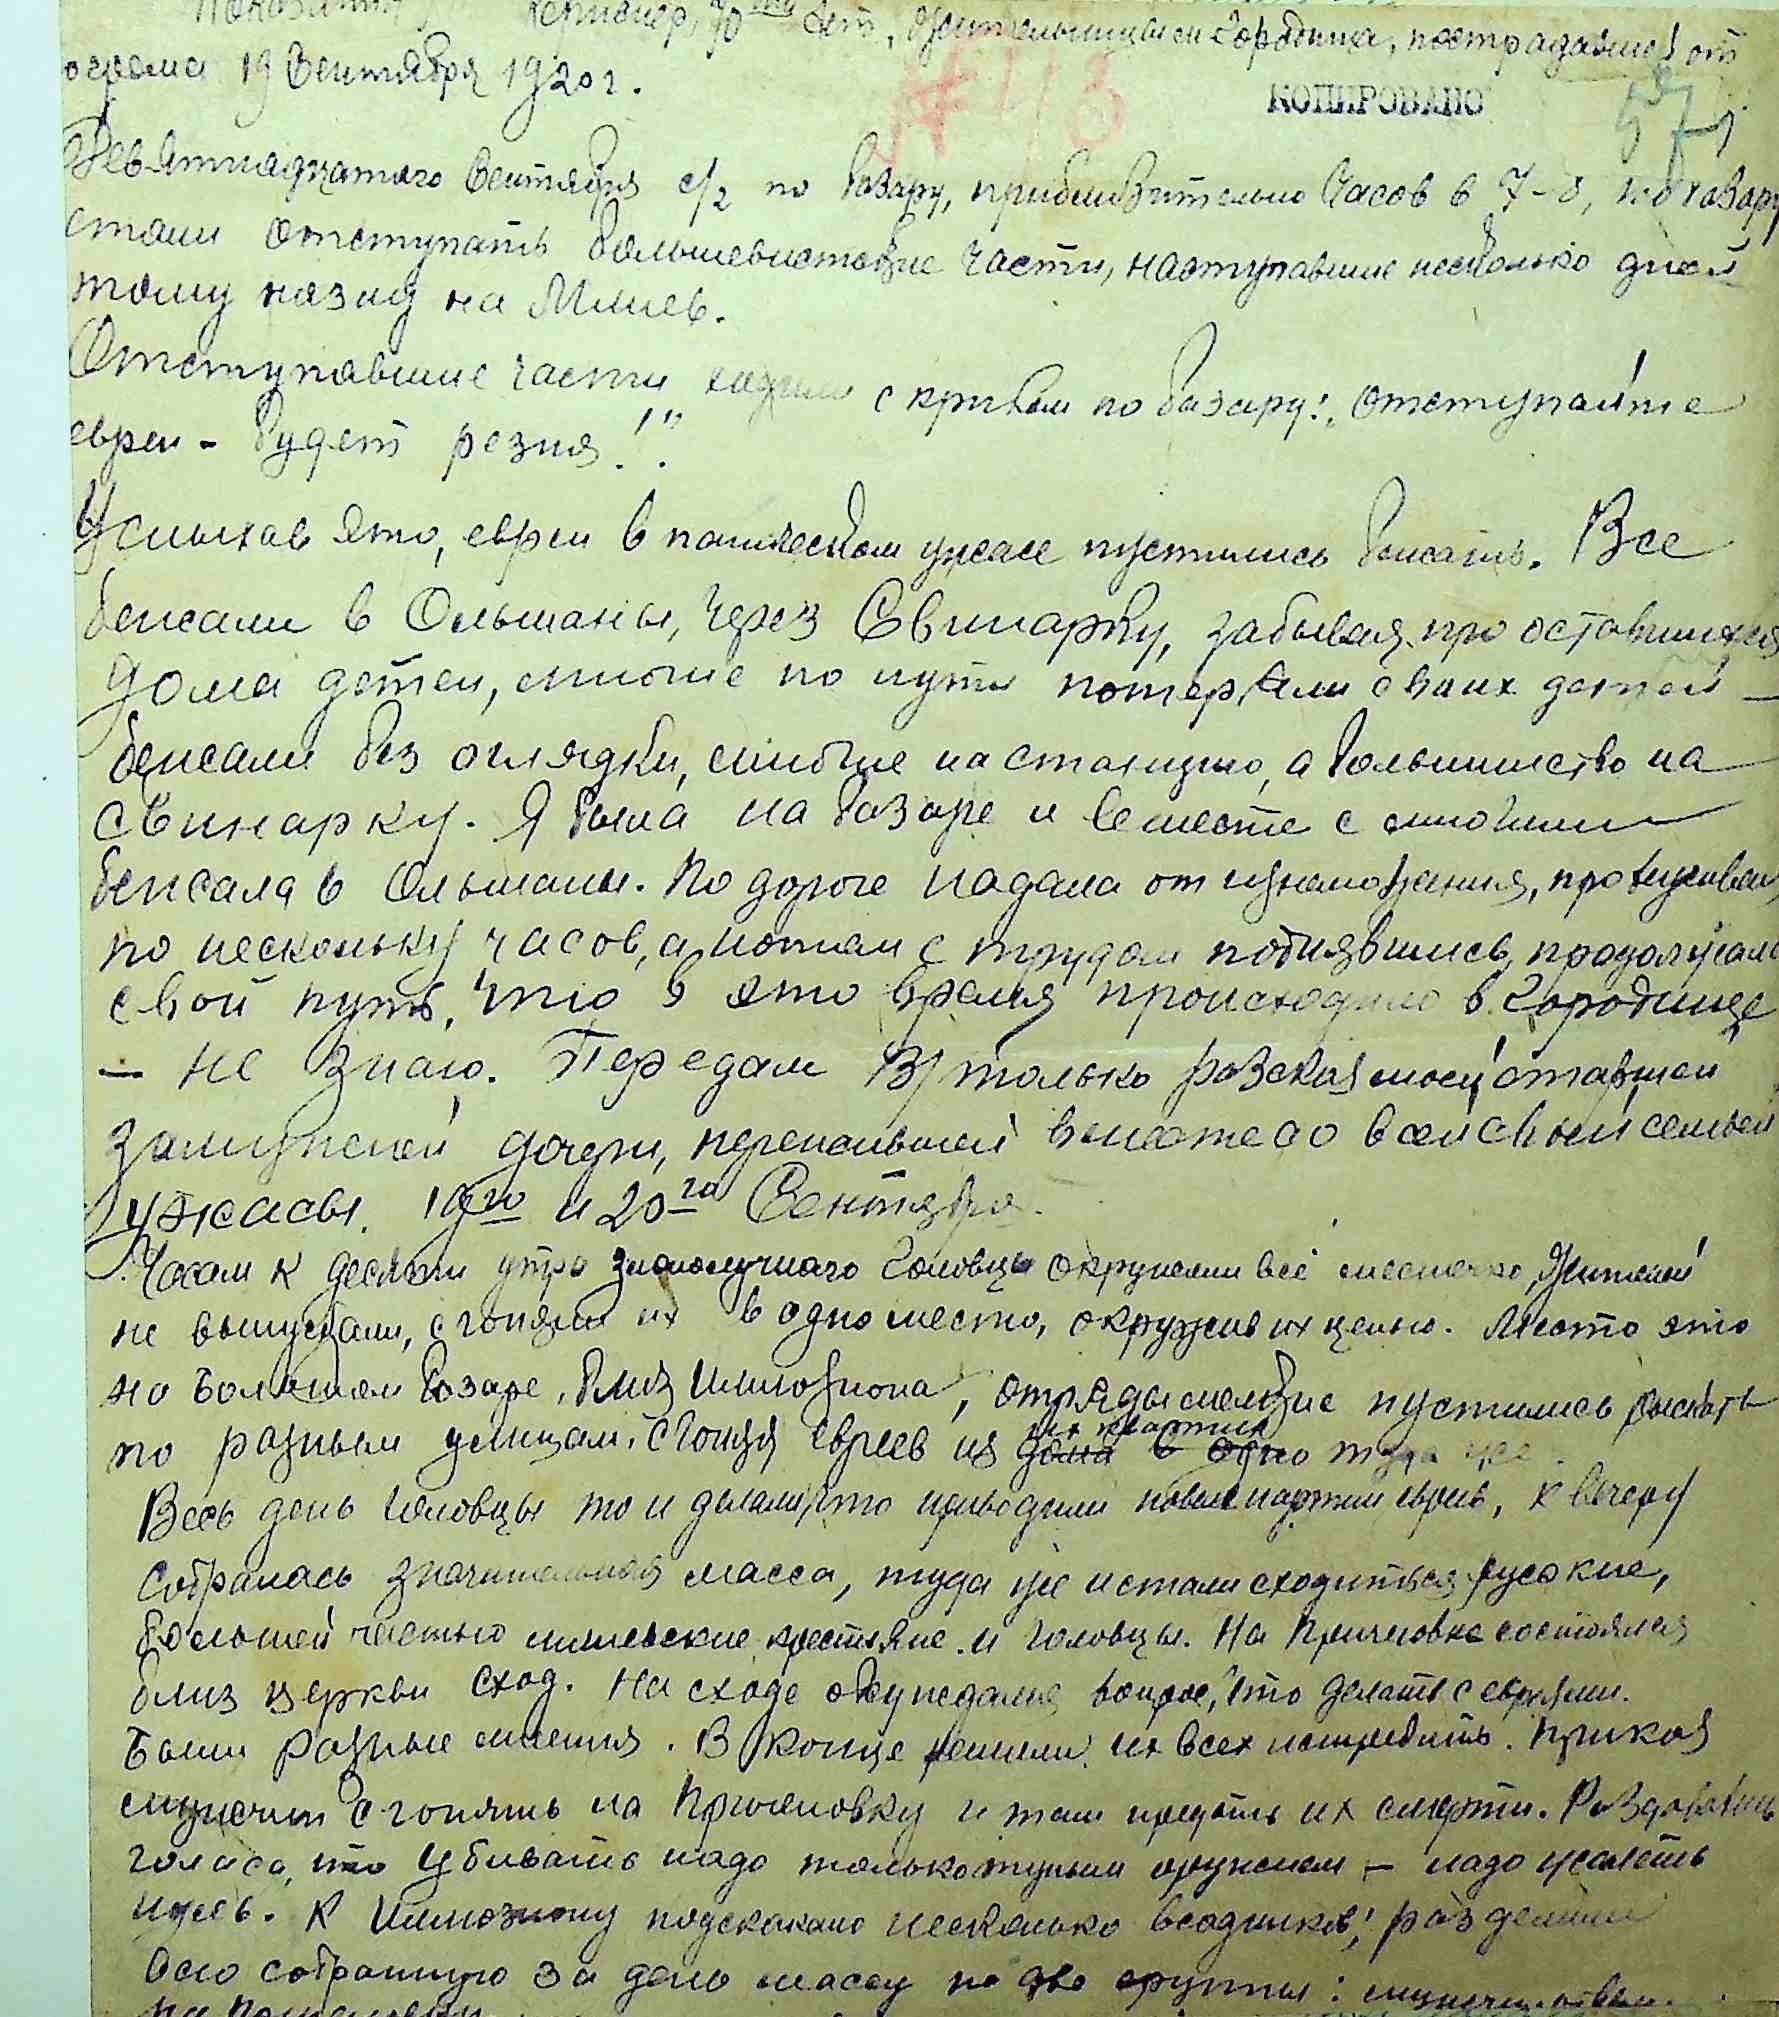 Показания Кержнер, 70ти лет, жительницы м. Городища, пострадавшей от
погрома 19 Сентября 1920 г.
КОПИРОВАНО
57
Девятнадцатого Сентября с/г по базару, приблизительно Часов в 7-8, по базару
стали отступать большевистские части, наступавшие несколько дней
тому назад на Млиев.
Отступавшие части ходили с криком по базару: „отступайте
евреи - будет резня!!"
Услыхав это, евреи в паническом ужасе пустились бежать. Все
бежали в Ольшаны, через Свинарку, забывая про оставшихся
дома детей, многие по пути потеряли своих детей —
бежали без оглядки, многие на станцию, а большинство на
Свинарку. Я была на базаре и вместе с многими
бежала в Ольшаны. По дороге падала от изнеможения,
по нескольку часов, а потом с трудом поднявшись, продолжала
свой путь, что в это время происходило в Городище
— не знаю. Передам только рассказ моей старшей
замужней дочери, пережившей вместе со всей своей семьей
ужасы 19го и 20го Сентября.
Часам к десяти утра злополучного Головцы окружили всё местечко, Жителей
не выпускали, сгоняли их в одно место, окружив их цепью. Место это
на Большом базаре, близ Иллюзиона, отряды мелкие пустились рыскать
по разным улицам, сгоняя евреев из дома их квартир в одно туда же.
Весь день Головцы то и делали, что приводили новые партии евреев, к вечеру
собралась значительная масса, туда же и стали сходиться русские,
большей частью млиевские крестьяне и Головцы. На состоялся
близ церкви сход. На сходе обсуждался вопрос, что делать с евреями.
Были разные мнения. В конце решили их всех истребить. Приказ
мужчин сгонять на и там предать их смерти. Раздавались
голоса, что убивать надо только тупым оружием — надо жалеть
пуль. К Иллюзиону подскакало несколько всадников, разделили
всю собранную за день массу на две группы: мужчин отвели
на